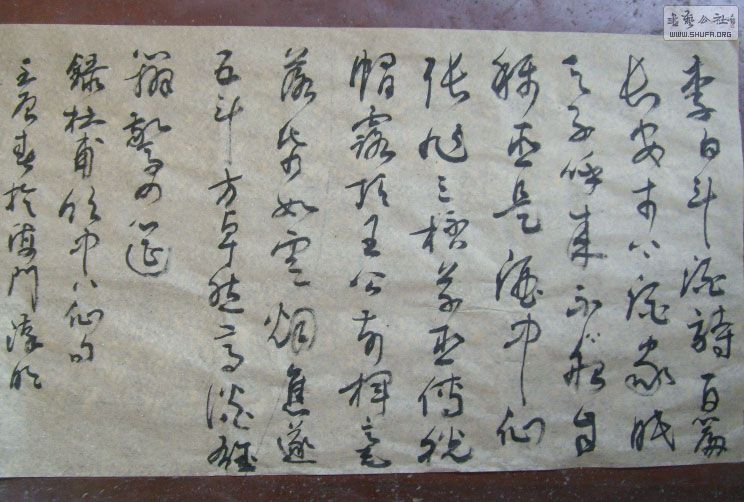 書藝公社
WWW.SHUFA.ORG
李白斗酒詩百篇
長安市上酒家眠
天子呼来不上船自
稱臣是酒中仙
張旭三杯草聖傳脫
帽露頂王公前揮毫
落紙如雲烟焦遂
五斗方卓然高談雄
辯驚四筵
録杜甫飲中八仙句
春於海門